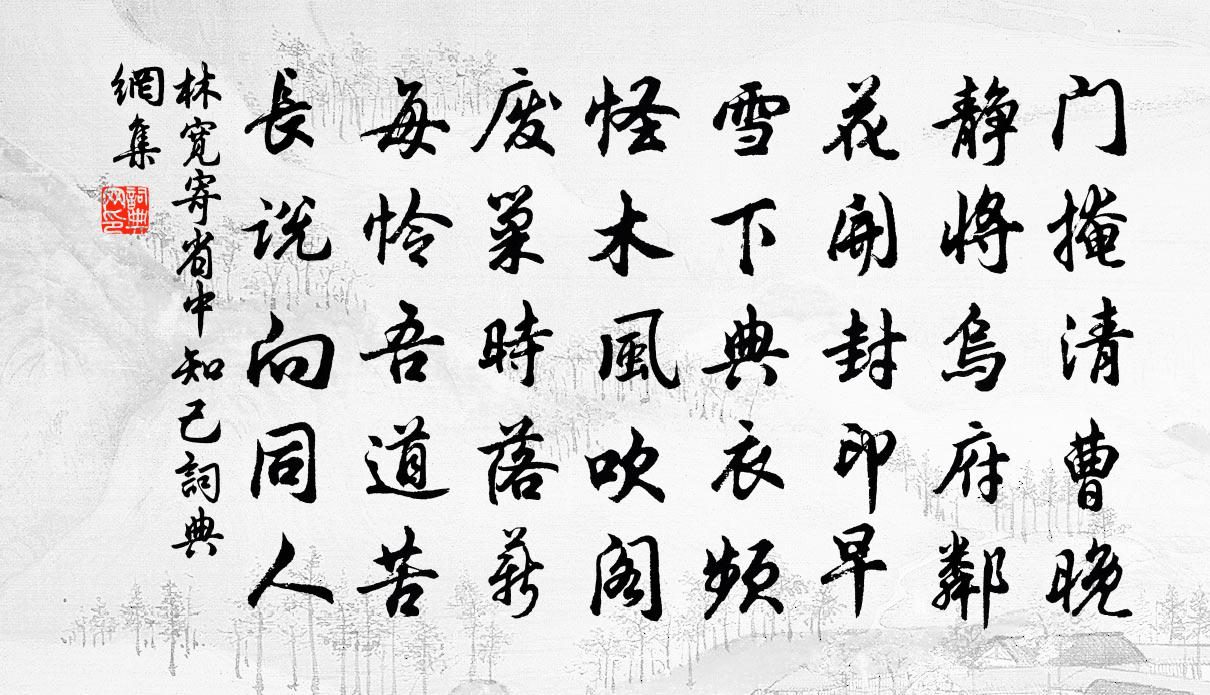 门掩清曹晚
静将乌府鄰
花開封印早
雪下典衣頻
怪木風吹阁
废巢時落薪
每怜吾道苦
長说向同人
林宽寄省中知己詞典
網集
詞典
网印